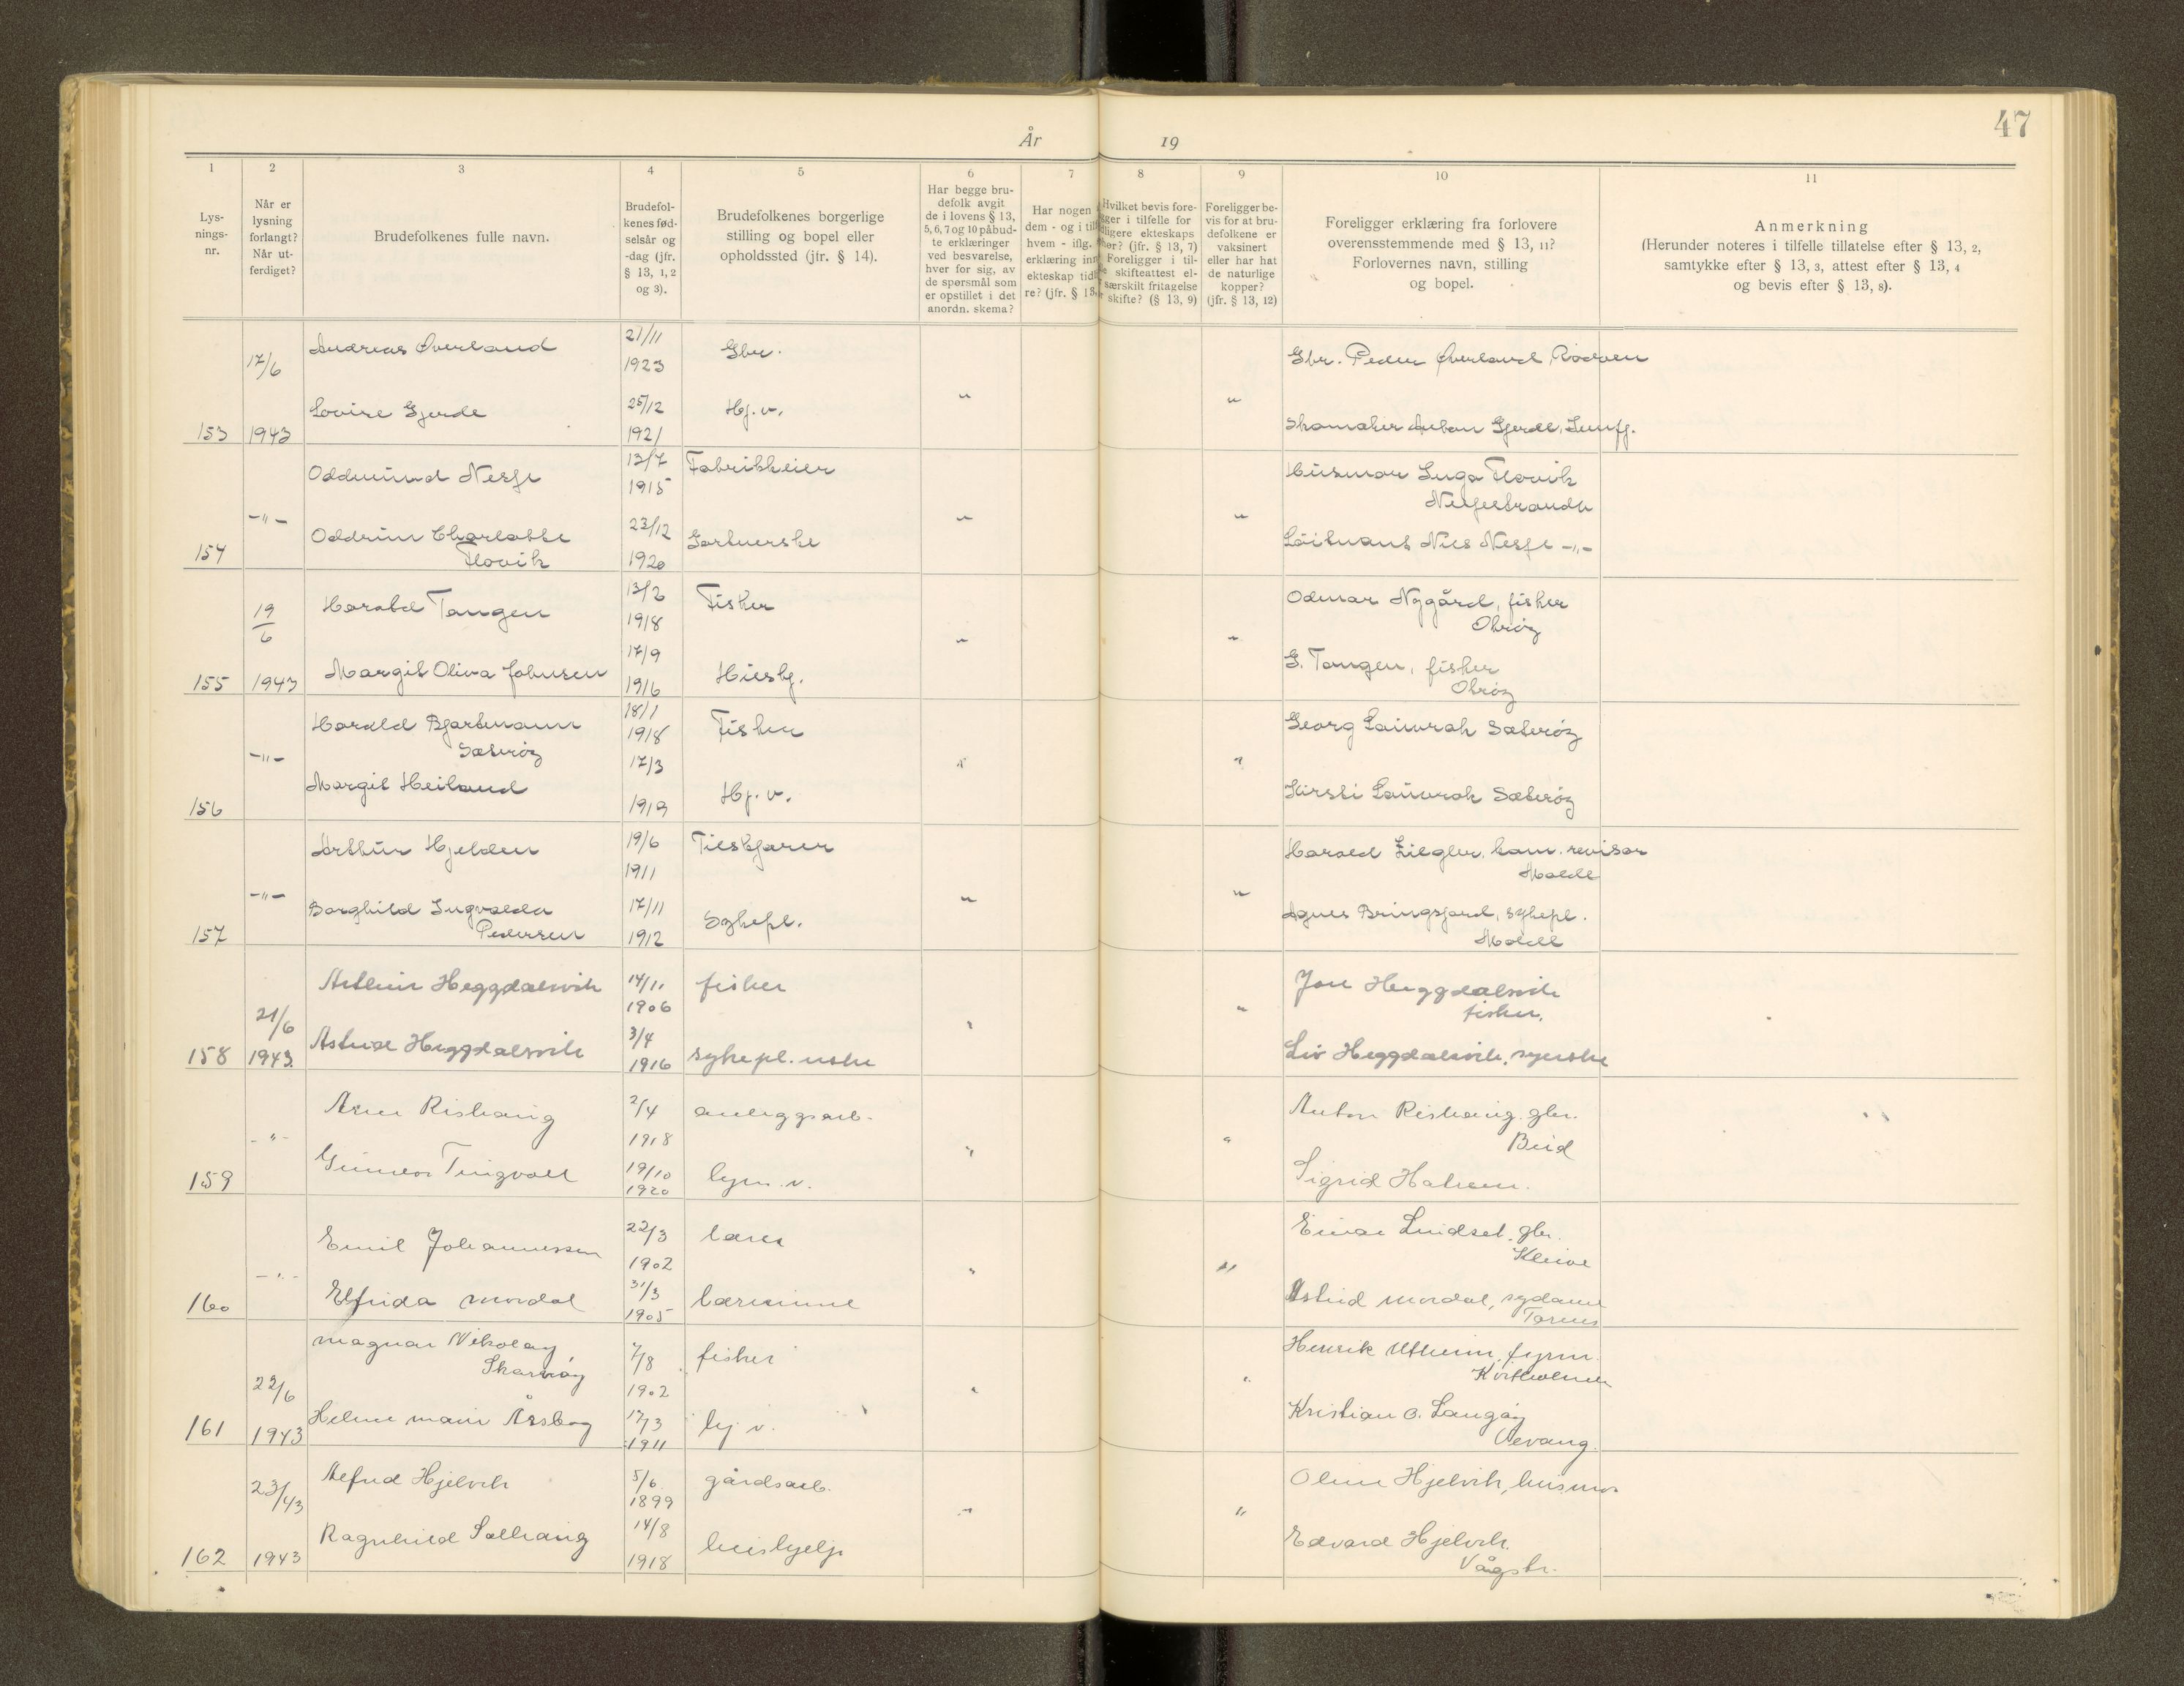 47
År 19
1 2 3 4 5 6 7 8 9 10 11
Lys-
nings-
nr.
Når er
lysning
forlangt?
Når ut-
ferdiget?
Brudefolkenes fulle navn.
Brudefol-
kenes fød-
selsår og
-dag (jfr.
§ 13, 1, 2
og 3).
Brudefolkenes borgerlige
stilling og bopel eller
opholdssted (jfr. § 14).
Har begge bru-
defolk avgit
de i lovens § 13,
5, 6, 7 og 10 påbud-
te erklæringer
ved besvarelse,
hver for sig, av
de spørsmål som
er opstillet i det
anordn. skema?
Har nogen
dem - og i til
hvem - iflg.
erklæring inn
ekteskap tid
re? (jfr. § 13,
Hvilket bevis fore-
gger i tilfelle for
dligere ekteskaps
hør? (jfr. § 13, 7)
Foreligger i til-
skifteattest el-
særskilt fritagelse
skifte? (§ 13, 9)
Foreligger be-
vis for at bru-
defolkene er
vaksinert
eller har hat
de naturlige
kopper?
(jfr. § 13, 12)
Foreligger erklæring fra forlovere
overensstemmende med § 13, 11?
Forlovernes navn, stilling
og bopel.
Anmerkning
(Herunder noteres i tilfelle tillatelse efter § 13, 2,
samtykke efter § 13, 3, attest efter § 13, 4
og bevis efter § 13, 8).
Andreas Øverland 21/11 Gbr. Gbr. Peder Øverland Rødven
17/6 1923
Lovise Gjerde 25/12 Hj.v. " "
153 1943 1921 Skomaker Anton Gjerde,
Oddmund Nesje 13/7 Fabrikkeier Husmor Inga Flovik
1915 Nesjestranda
-"- " "
Oddrun Charlotte 23/12 Gartnerske Løitnant Nils Nesje -"-
154 Flovik 1920
Harald Tangen 13/2 Fisker Odmar Nygård, fisker
19/6 1918 Otrøy
17/9 " " G. Tangen, fisker
155 1943 Margit Oliva Johnsen 1916 Hushj. Otrøy
Harald Bjartmann 18/1 Fisker Georg Laurak Sæterøy
Sæterøy 1918
-"- 17/3 " "
Margit Heiland Hj.v. Kirsti Laurak Sæterøy
156 1919
Arthur Hjelden 19/6 Tilskjærer Harald Ziegler, kom. revisor
1911 Molde
-"- " "
Borghild Ingvalda 17/11 Sykepl. Agnes Bringsjord, sykepl.
157 Pedersen 1912 Molde
Arthur Heggdalsvik 14/11 fisker Jon Heggdalsvik
21/6 1906 " fisker.
3/4 "
158 1943. Astrid Heggdalsvik 1916 sykepl.erske Liv Heggdalsvik, syerske
Arne Rishaug 2/4 anleggsarb. Anton Rishaug. gbr.
-"- 1918 " " Bud
Gunvor Tingvoll 19/10 hjm.v. Sigrid Halsen.
159 1920
Emil Johannessen 22/3 lærer Einar Lindset. gbr.
1902 Kleive
-"- " "
Elfrida Mordal 31/3 lærerinne Astrid Mordal, sydame
160 1905 Tornes
Magnar Nikolay 7/8 fisker Henrik Utheim, fyrm.
Skarvøy Kvitholmen
22/6 1902 " "
Helene Marie Årsbog 17/3 hj v. Kristian O. Langøy
161 1943 1911 Vevang.
Alfred Hjelvik 5/6 gårdsarb. Oline Hjelvik, husmor
23/43 1899 " "
Ragnhild Solhaug 14/8 hushjelp Edvard Hjelvik.
162 1943 1918 Vågstr.